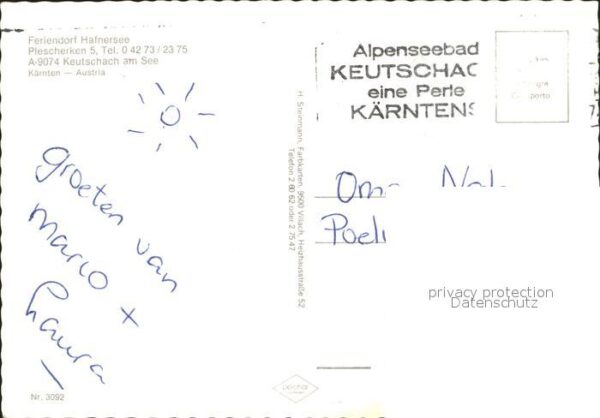 Feriendorf Hafnersee
Plescherken 5, Tel. 0 42 73 / 23 75
A-9074 Keutschach am See
Kärnten — Austria
Groeten van
Marco +
Laura
Nr. 3092
H. Steinmann, Farbkarten, 9500 Villach, Heizhausstraße 52
Telefon 2 80 62 oder 2 75 47
Alpenseebad
KEUTSCHAC
eine Perle
KÄRNTENS
privacy protection
Datenschutz